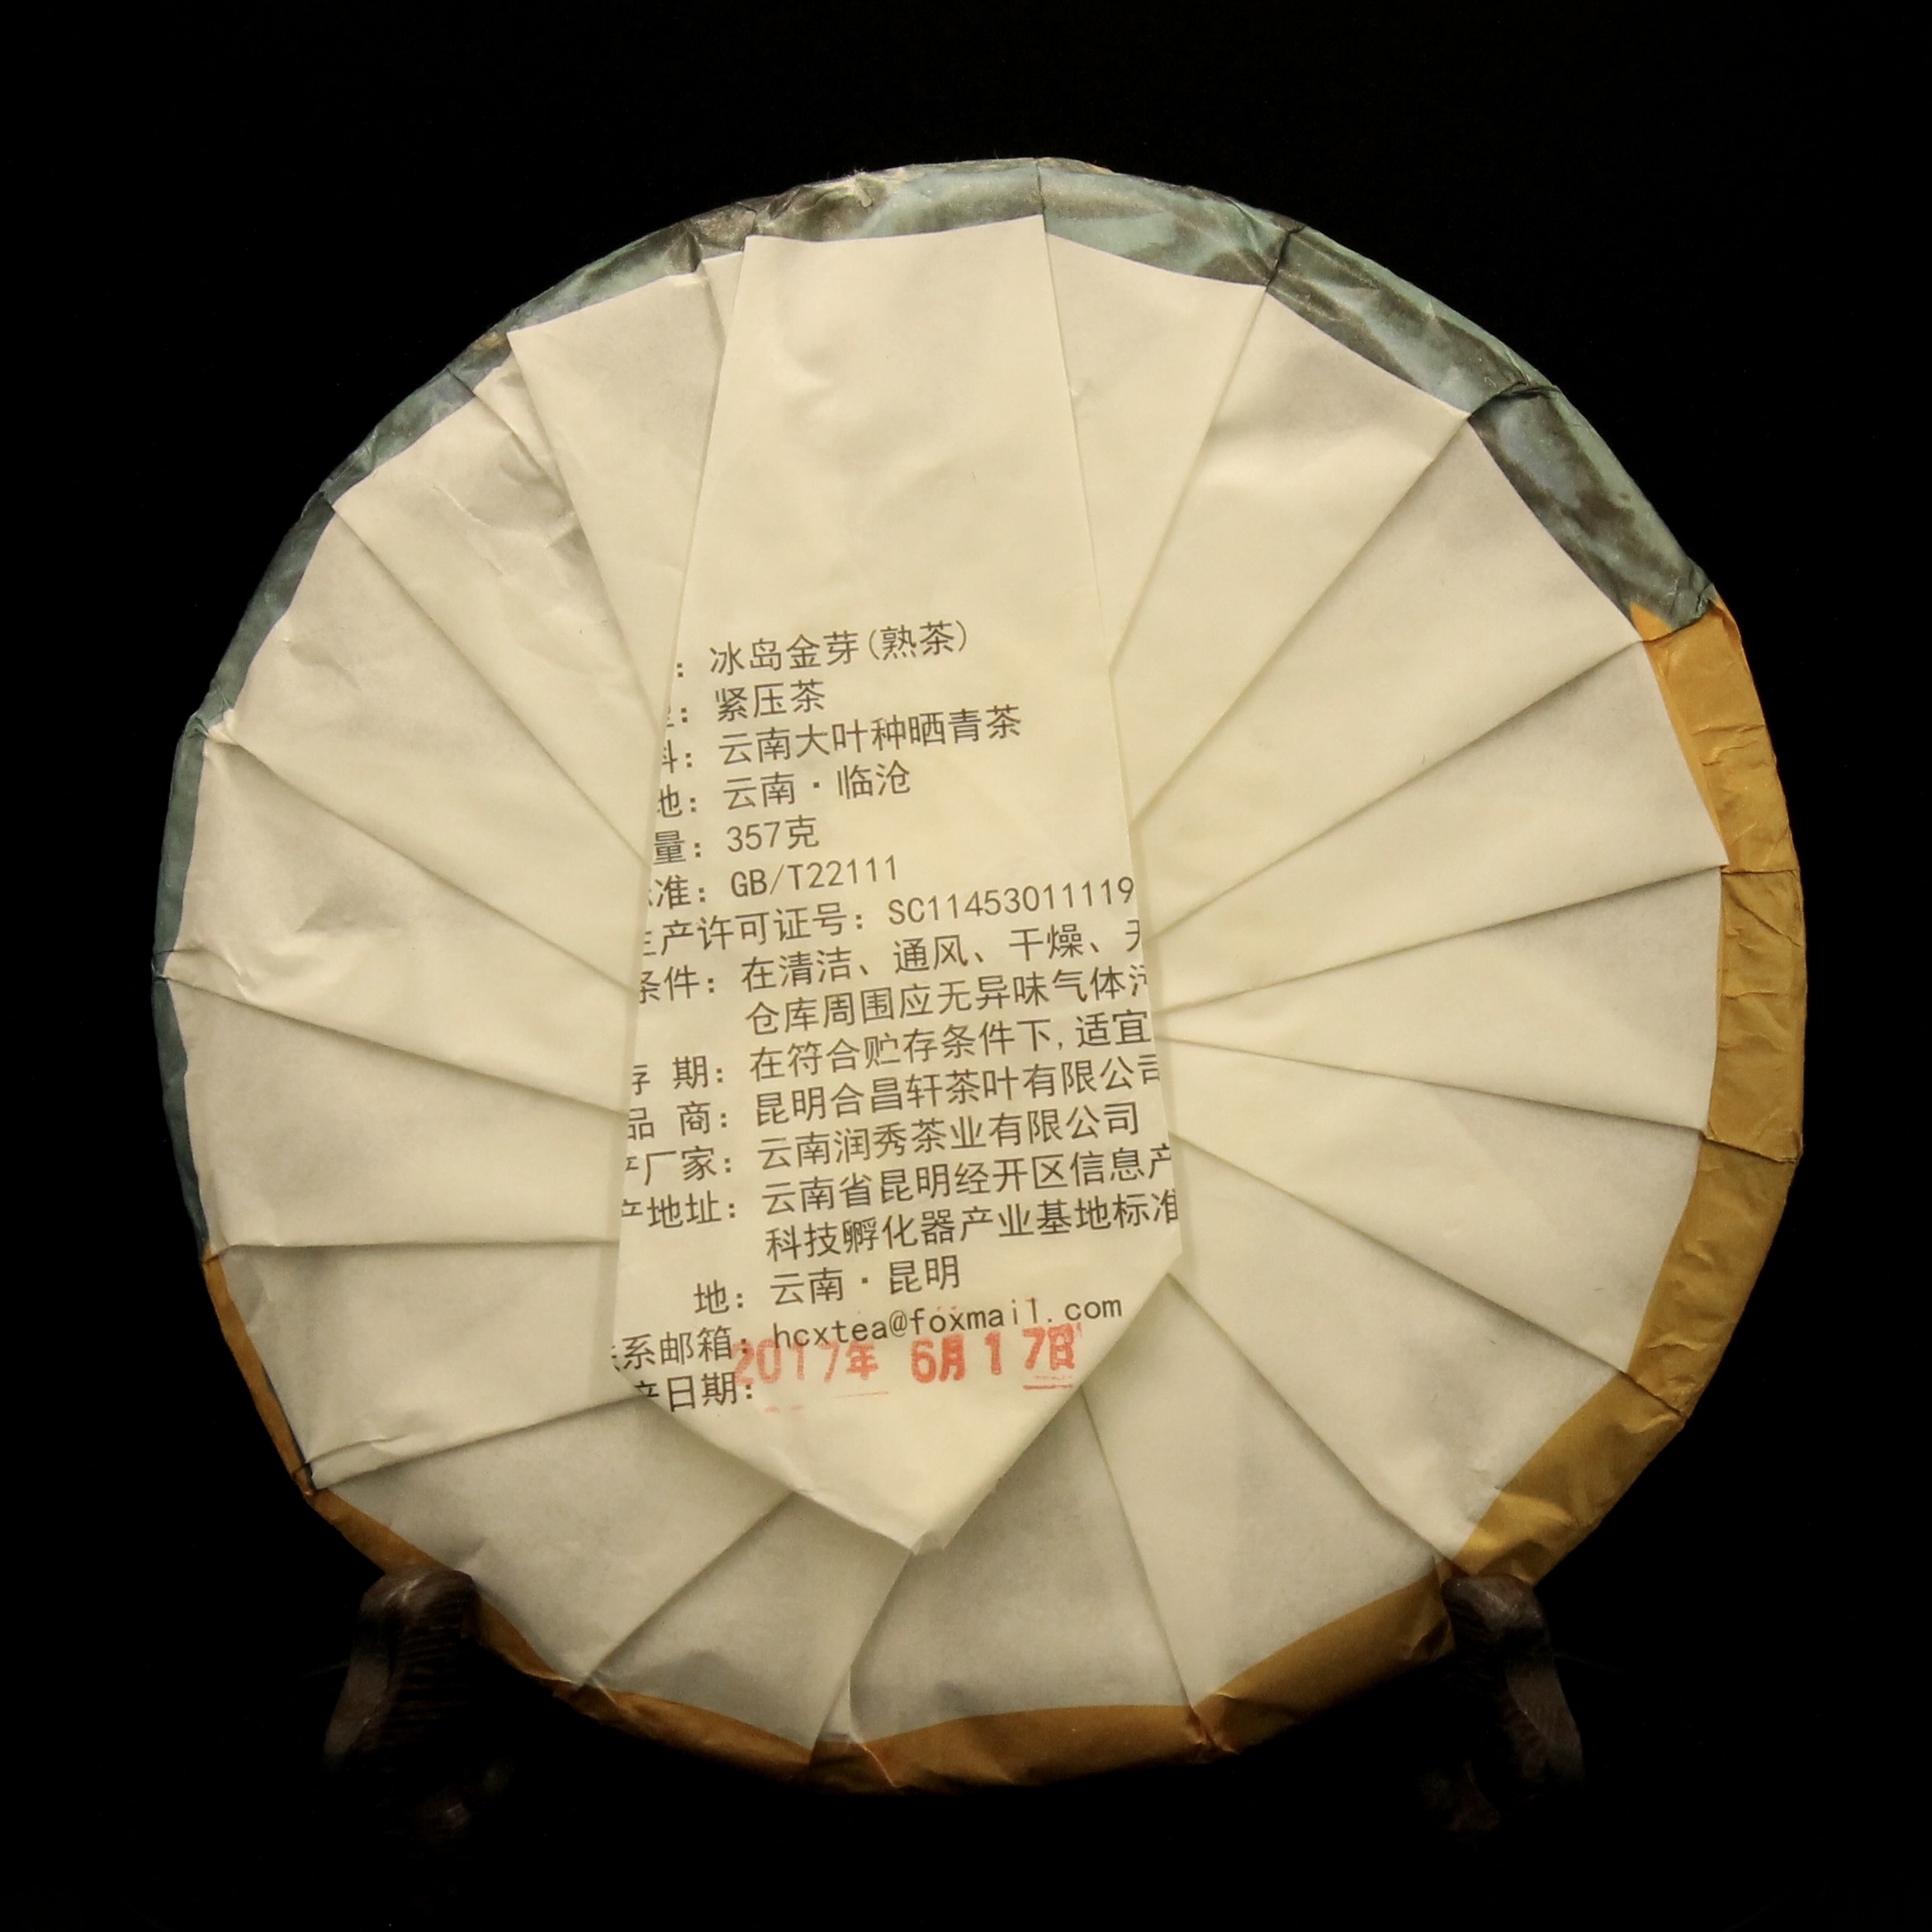 ：冰岛金芽(熟茶)
：紧压茶
料：云南大叶种晒青茶
地：云南·临沧
量：357克
准：GB/T22111
产许可证号：SC11453011119
条件：在清洁、通风、干燥、
仓库周围应无异味气体
存 期：在符合贮存条件下,适宜
品 商：昆明合昌轩茶叶有限公司
厂家：云南润秀茶业有限公司
产地址：云南省昆明经开区信息产
科技孵化器产业基地标准
地：云南·昆明
系邮箱：hcxtea@foxmail.com
2017年 6月17日
产日期：